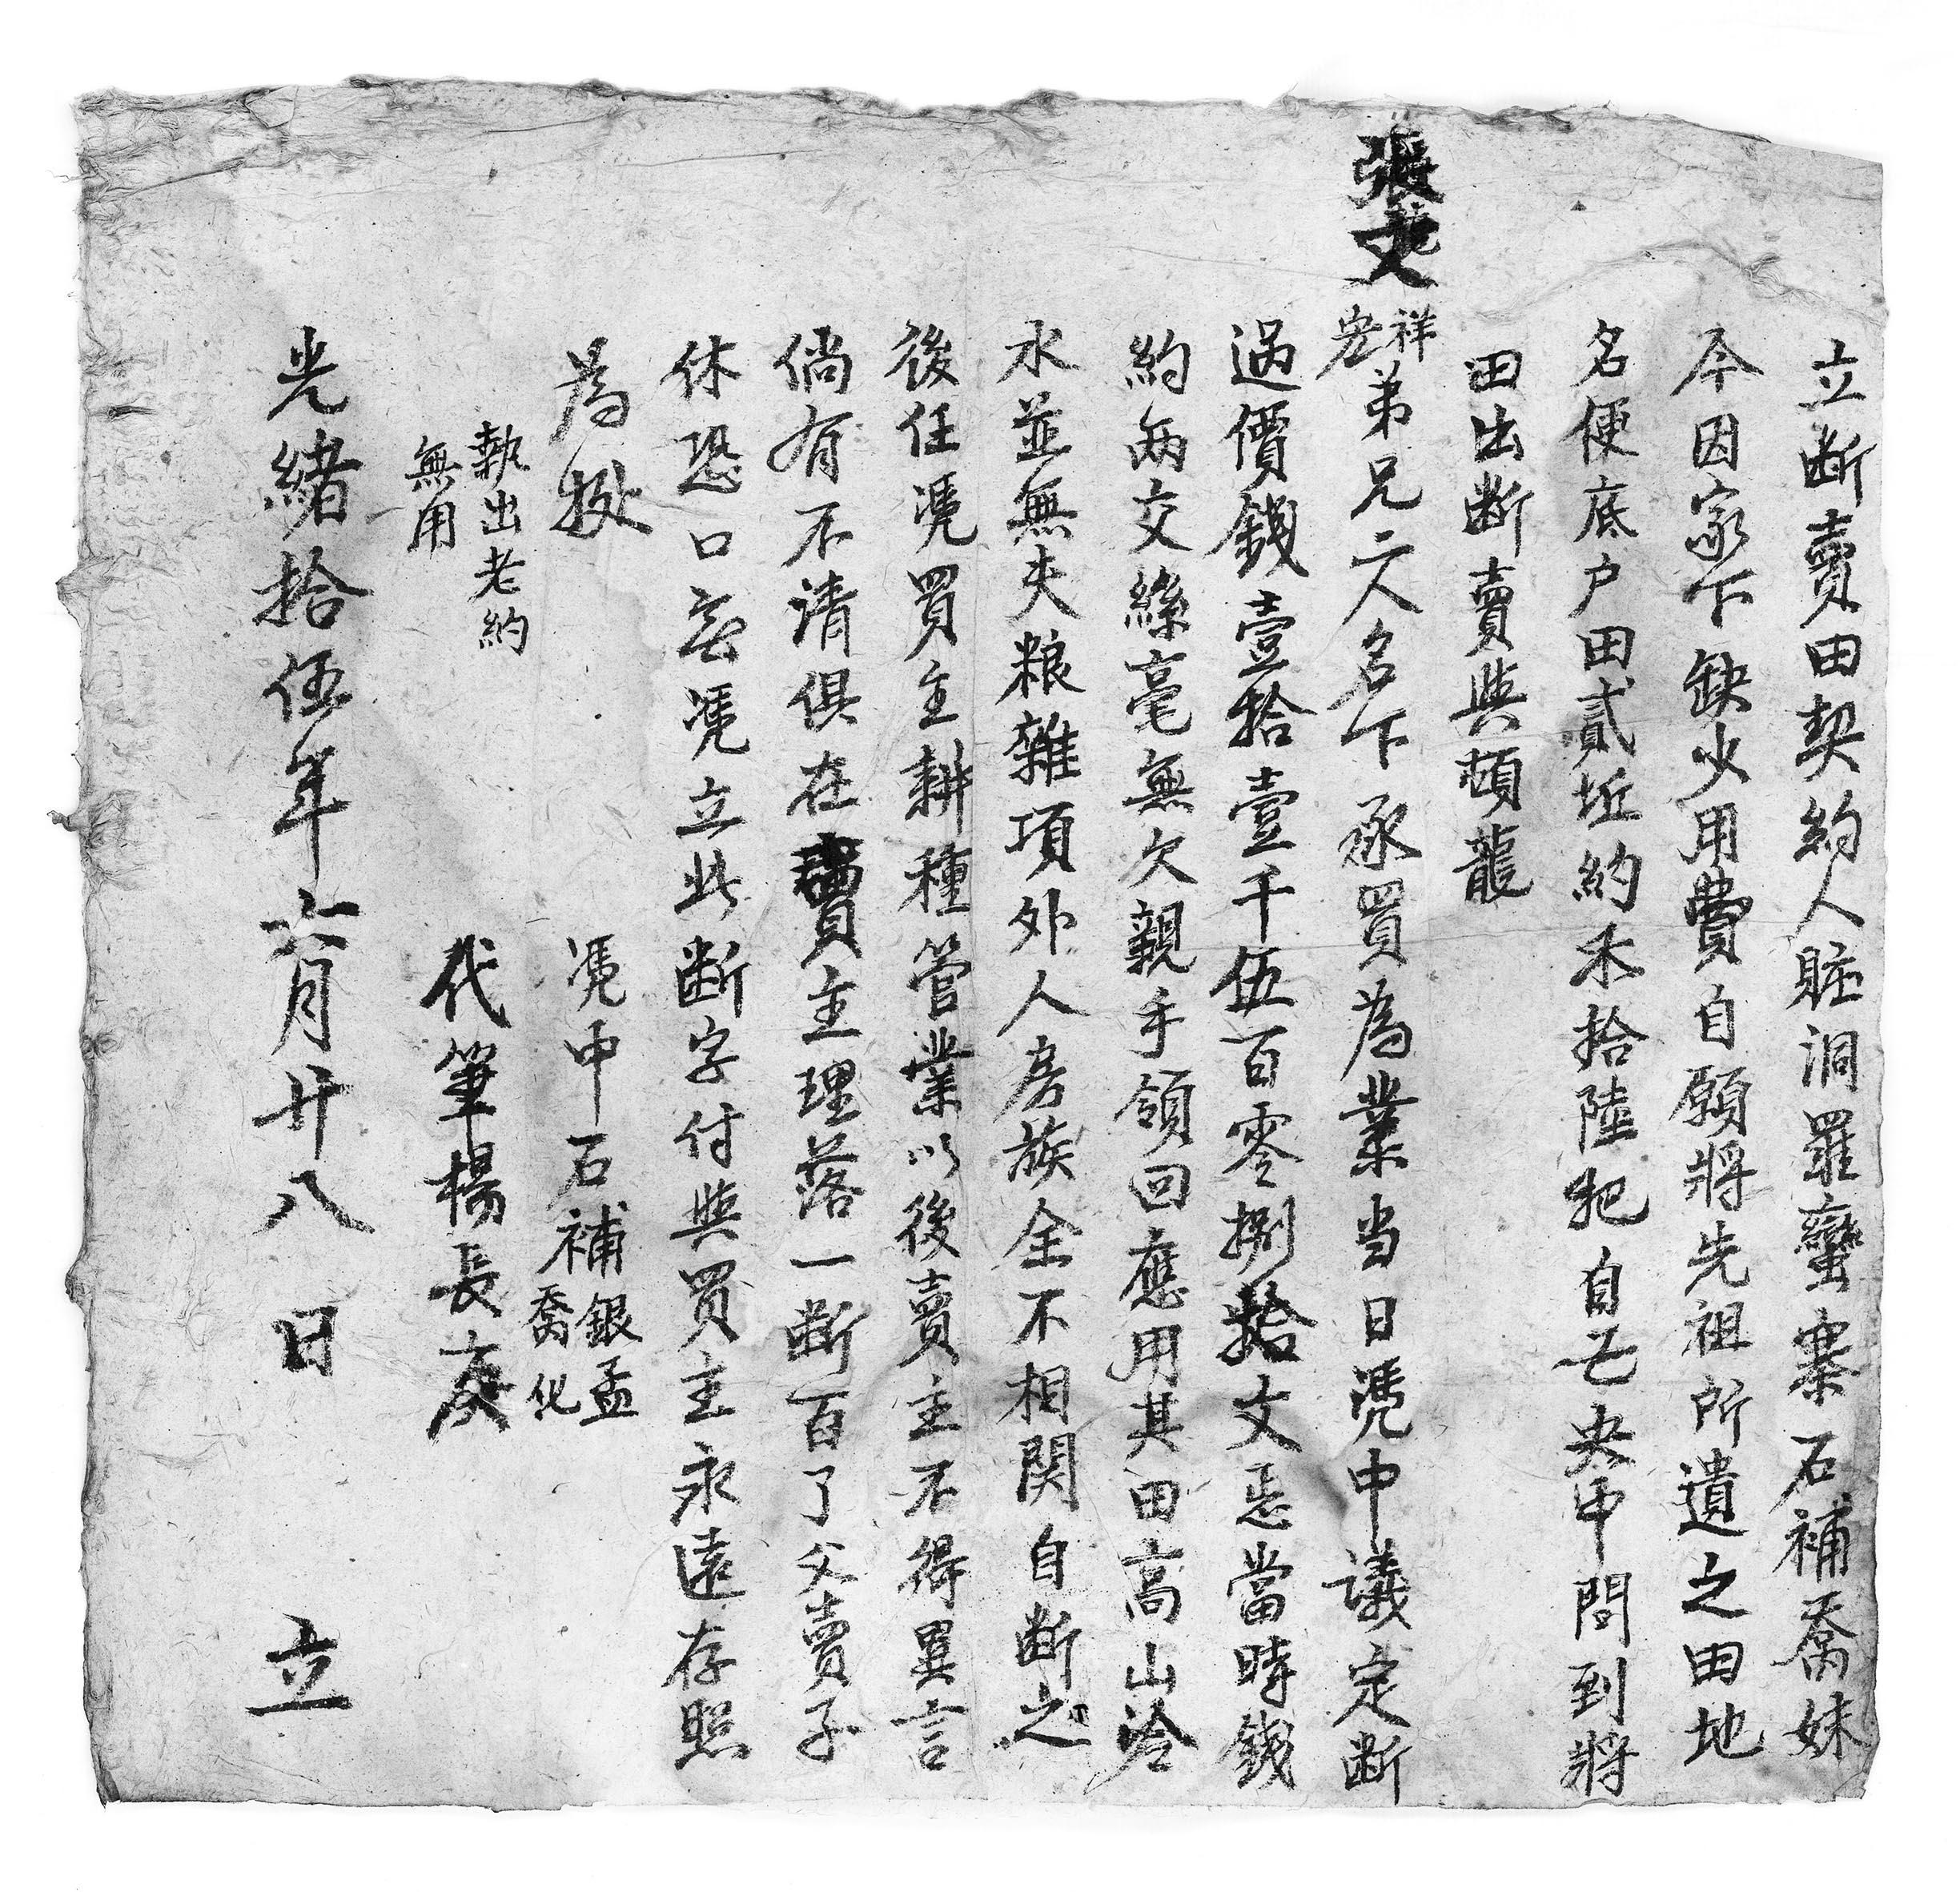 立断賣田契約人賍洞羅蠻寨石補喬妹
今因家下缺火用費自願將先祖所遺之田地
名便底户田貳坵約禾拾陸把自己央中問到將
田出断賣與頓龍
張文祥宏弟兄二人名下承買為業当日凴中議定断
過價錢壹拾壹千伍百零捌拾文悉當時錢
約兩交絲毫無欠親手領回應用其田高山冷
水並無夫粮雜項外人房族全不相関自断之
後任凴買主耕種管業以後賣主不得異言
倘有不清俱在賣主理落一断百了父賣子
休恐口無凴立此断字付與買主永遠存照
為拠
執出老約
無用
凴中石補銀孟喬化
代筆楊長
光緒拾伍年六月廿八日立